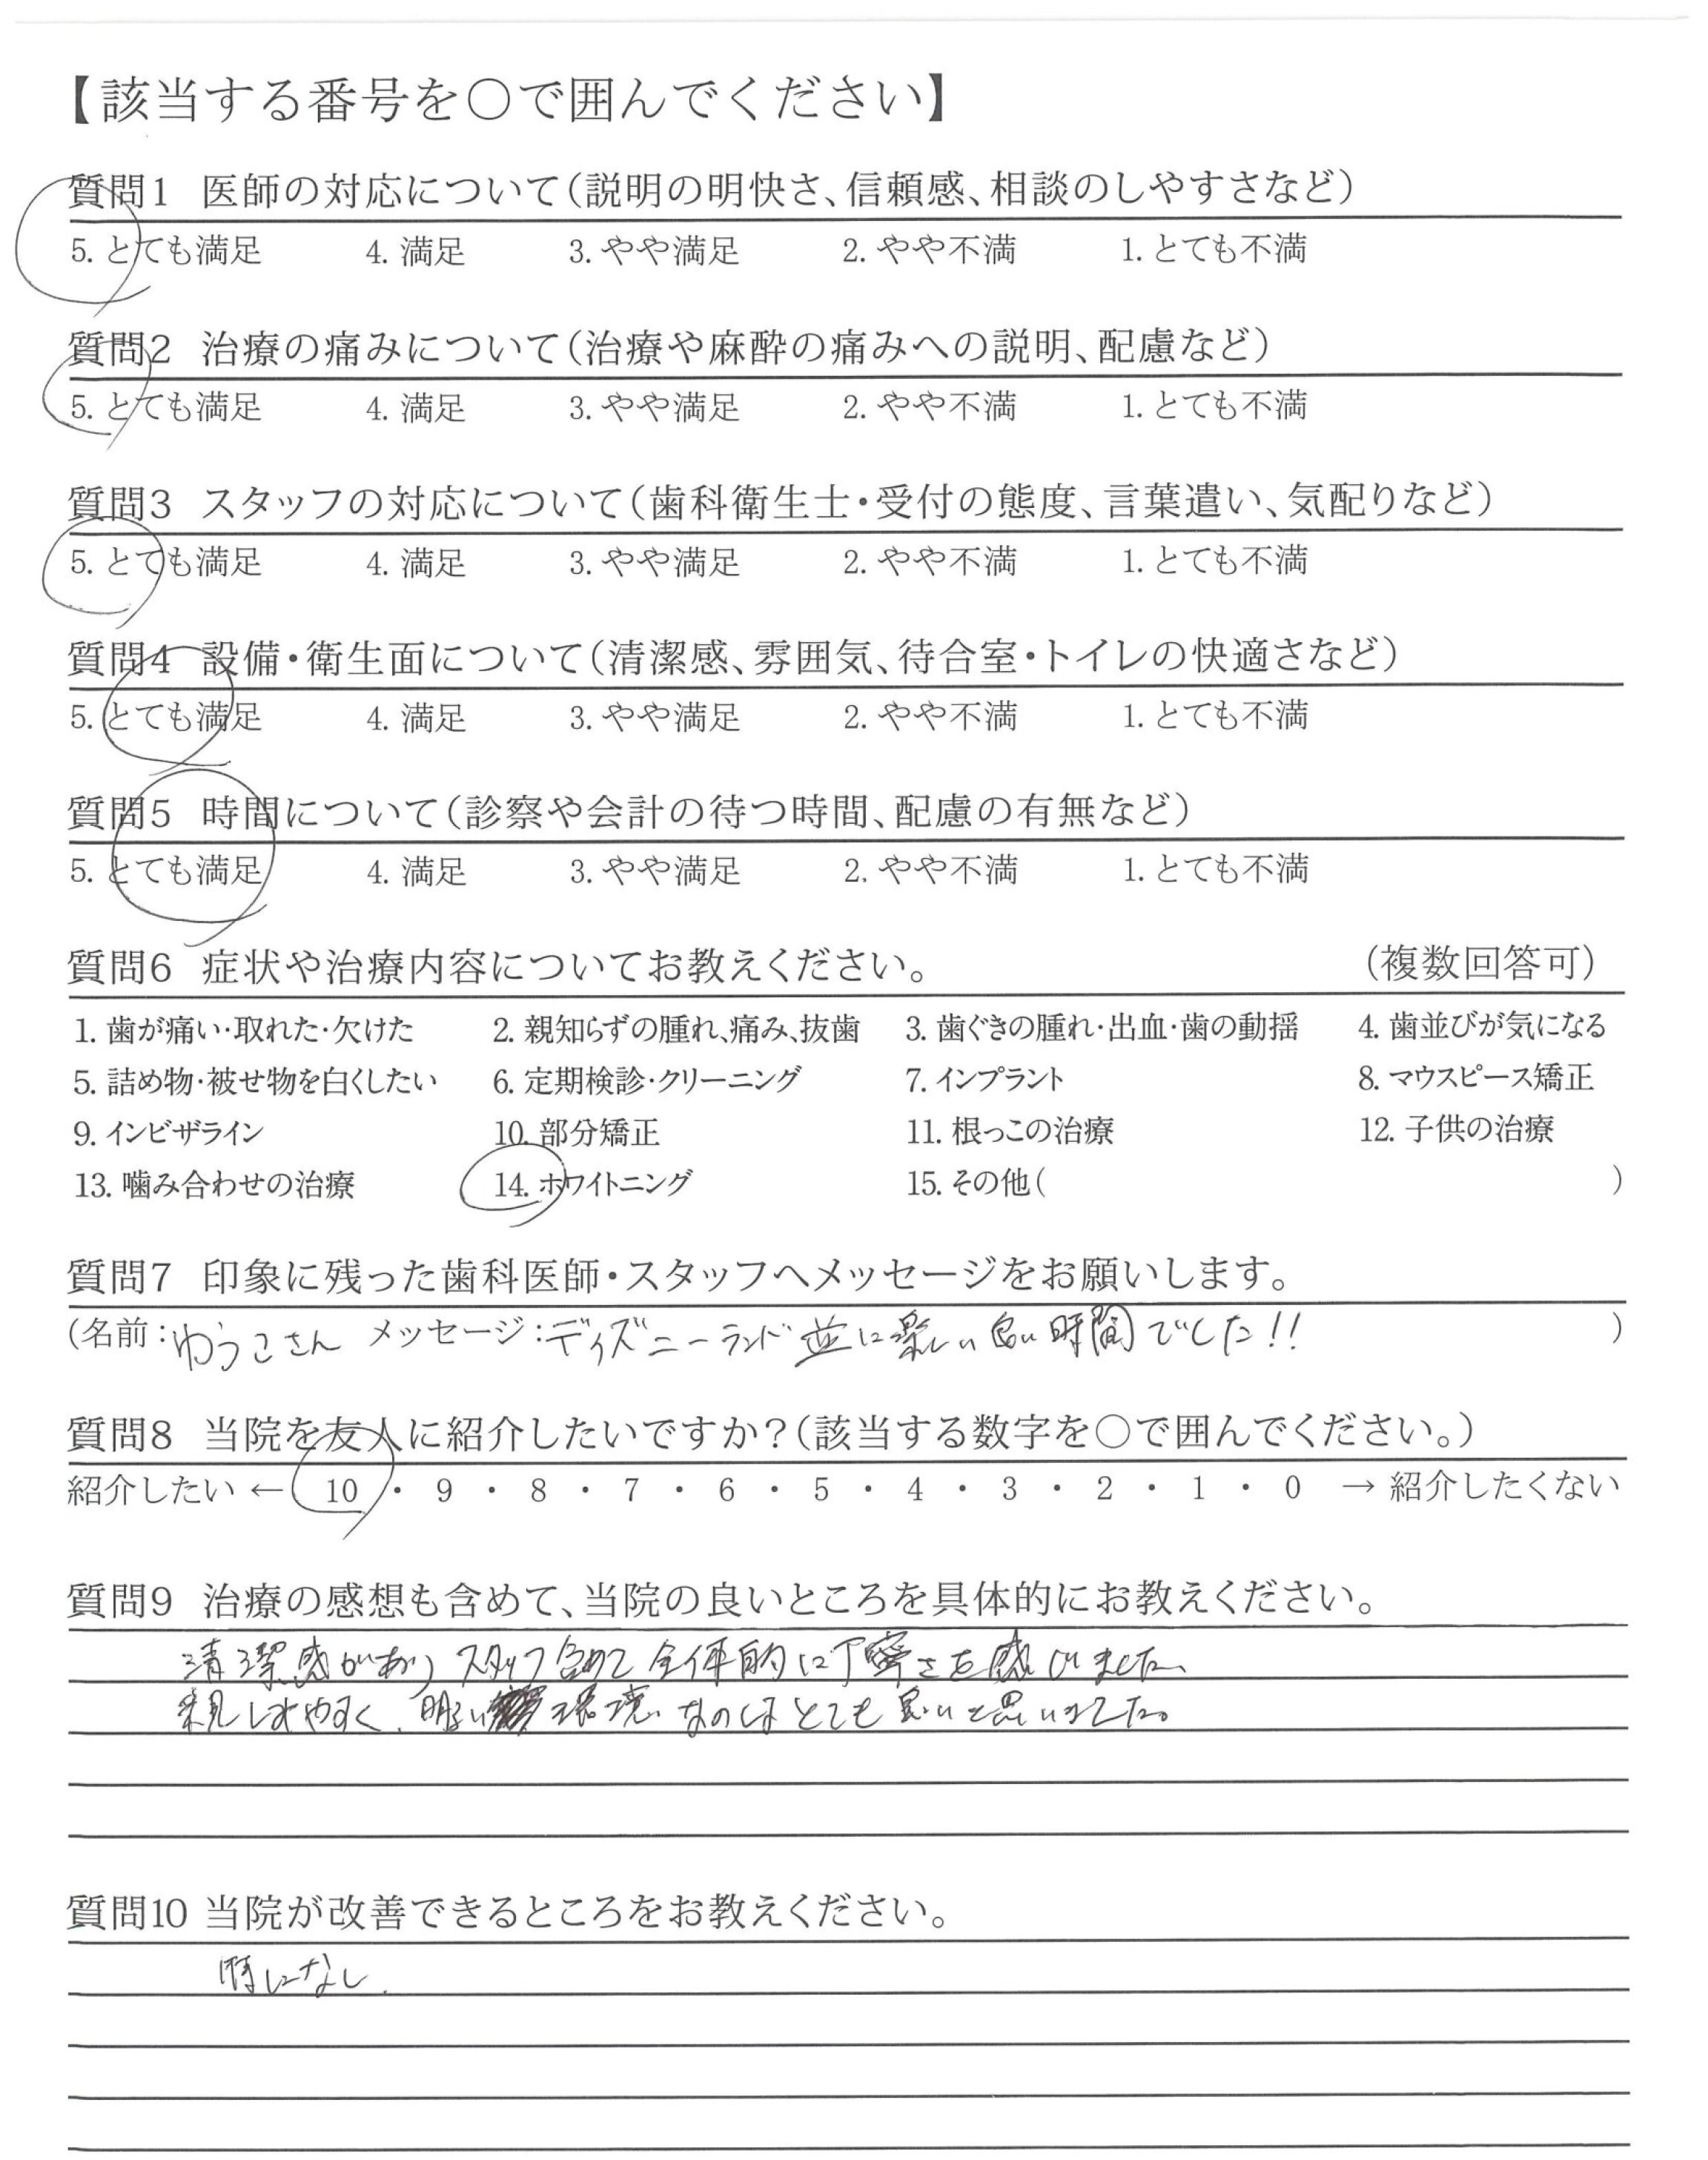 【該当する番号を○で囲んでください】
質問1 医師の対応について(説明の明快さ、信頼感、相談のしやすさなど)
5. とても満足 4. 満足 3. やや満足 2. やや不満 1. とても不満
質問2 治療の痛みについて(治療や麻酔の痛みへの説明、配慮など)
5. とても満足 4. 満足 3. やや満足 2. やや不満 1. とても不満
質問3 スタッフの対応について(歯科衛生士・受付の態度、言葉遣い、気配りなど)
5. とても満足 4. 満足 3. やや満足 2. やや不満 1. とても不満
質問4 設備・衛生面について(清潔感、雰囲気、待合室・トイレの快適さなど)
5. とても満足 4. 満足 3. やや満足 2. やや不満 1. とても不満
質問5 時間について(診察や会計の待つ時間、配慮の有無など)
5. とても満足 4. 満足 3. やや満足 2. やや不満 1. とても不満
質問6 症状や治療内容についてお教えください。 (複数回答可)
1. 歯が痛い・取れた・欠けた 2. 親知らずの腫れ、痛み、抜歯 3. 歯ぐきの腫れ・出血・歯の動揺 4. 歯並びが気になる
5. 詰め物・被せ物を白くしたい 6. 定期検診・クリーニング 7. インプラント 8. マウスピース矯正
9. インビザライン 10. 部分矯正 11. 根っこの治療 12. 子供の治療
13. 噛み合わせの治療 14. ホワイトニング 15. その他( )
質問7 印象に残った歯科医師・スタッフへメッセージをお願いします。
(名前:ゆうこさん メッセージ:ディズニーランド並に楽しい良い時間でした!! )
質問8 当院を友人に紹介したいですか?(該当する数字を○で囲んでください。)
紹介したい ← 10 ・ 9 ・ 8 ・ 7 ・ 6 ・ 5 ・ 4 ・ 3 ・ 2 ・ 1 ・ 0 → 紹介したくない
質問9 治療の感想も含めて、当院の良いところを具体的にお教えください。
清潔感があり、スタッフ含めて全体的に丁寧さを感じました。
親しみやすく、明るい環境なのはとても良いと思いました。
質問10 当院が改善できるところをお教えください。
特になし.